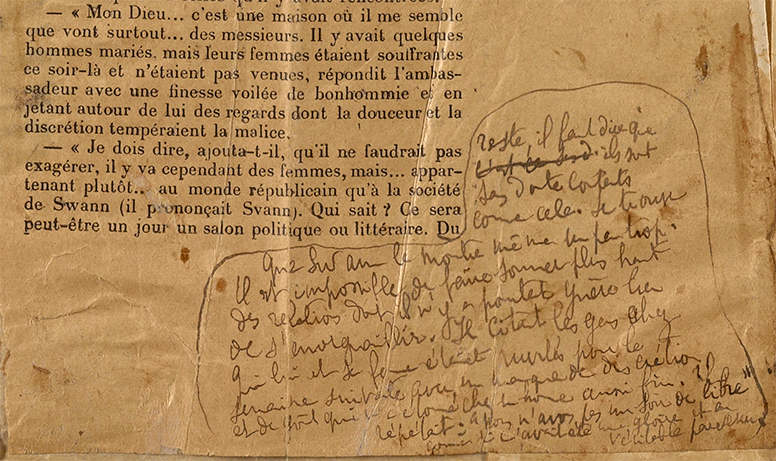 qu'il y avait rencontrées.
— « Mon Dieu... c'est une maison où il me semble
que vont surtout... des messieurs. Il y avait quelques
hommes mariés, mais leurs femmes étaient souffrantes
ce soir-là et n'étaient pas venues, répondit l'ambas-
sadeur avec une finesse voilée de bonhommie et en
jetant autour de lui des regards dont la douceur et la
discrétion tempéraient la malice.
— « Je dois dire, ajouta-t-il, qu'il ne faudrait pas
exagérer, il y va cependant des femmes, mais... appar-
tenant plutôt.. au monde républicain qu'à la société
de Swann (il prononçait Svann). Qui sait ? Ce sera
peut-être un jour un salon politique ou littéraire. Du
reste, il faut dire que
ils sont
sans doute contents
come cela. Je trouve
que Swann le montre même un peu trop.
Il est impossible de faire sonner plus haut
des relations dont il n'y a pourtant guère lieu
de s'enorgueillir. Il citait les gens chez
qui lui et sa femme étaient invités pour la
semaine suivante avec un manque de discrétion
et de goût qui m'a étonné chez un homme aussi fin. Il
répétait : « Nous n'avons pas un soir de libre »
comme si ç'avait été une gloire et en
véritable parvenu